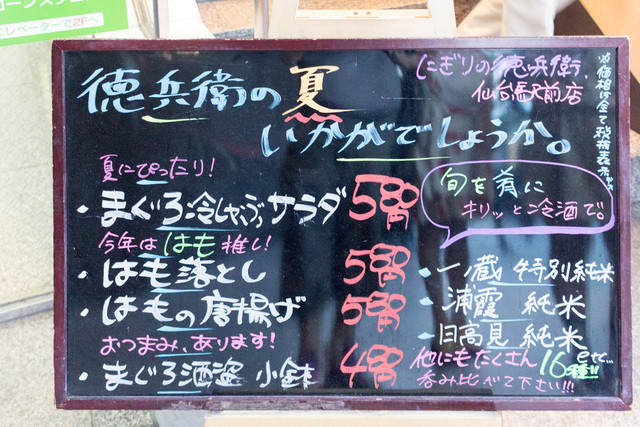 エレベーターで2Fへ
にぎりの徳兵衛
仙台駅前店
徳兵衛の夏
いかがでしょうか。
※価格は全て税抜表示です
夏にぴったり!
・まぐろ冷しゃぶサラダ
今年ははも推し!
・はも落とし
・はもの唐揚げ
おつまみ、あります!
・まぐろ酒盗 小鉢
旬を肴に
キリッと冷酒で。
・一ノ蔵 特別純米
・浦霞 純米
・日高見 純米
etc...
他にもたくさん16種!!
呑み比べて下さい!!!